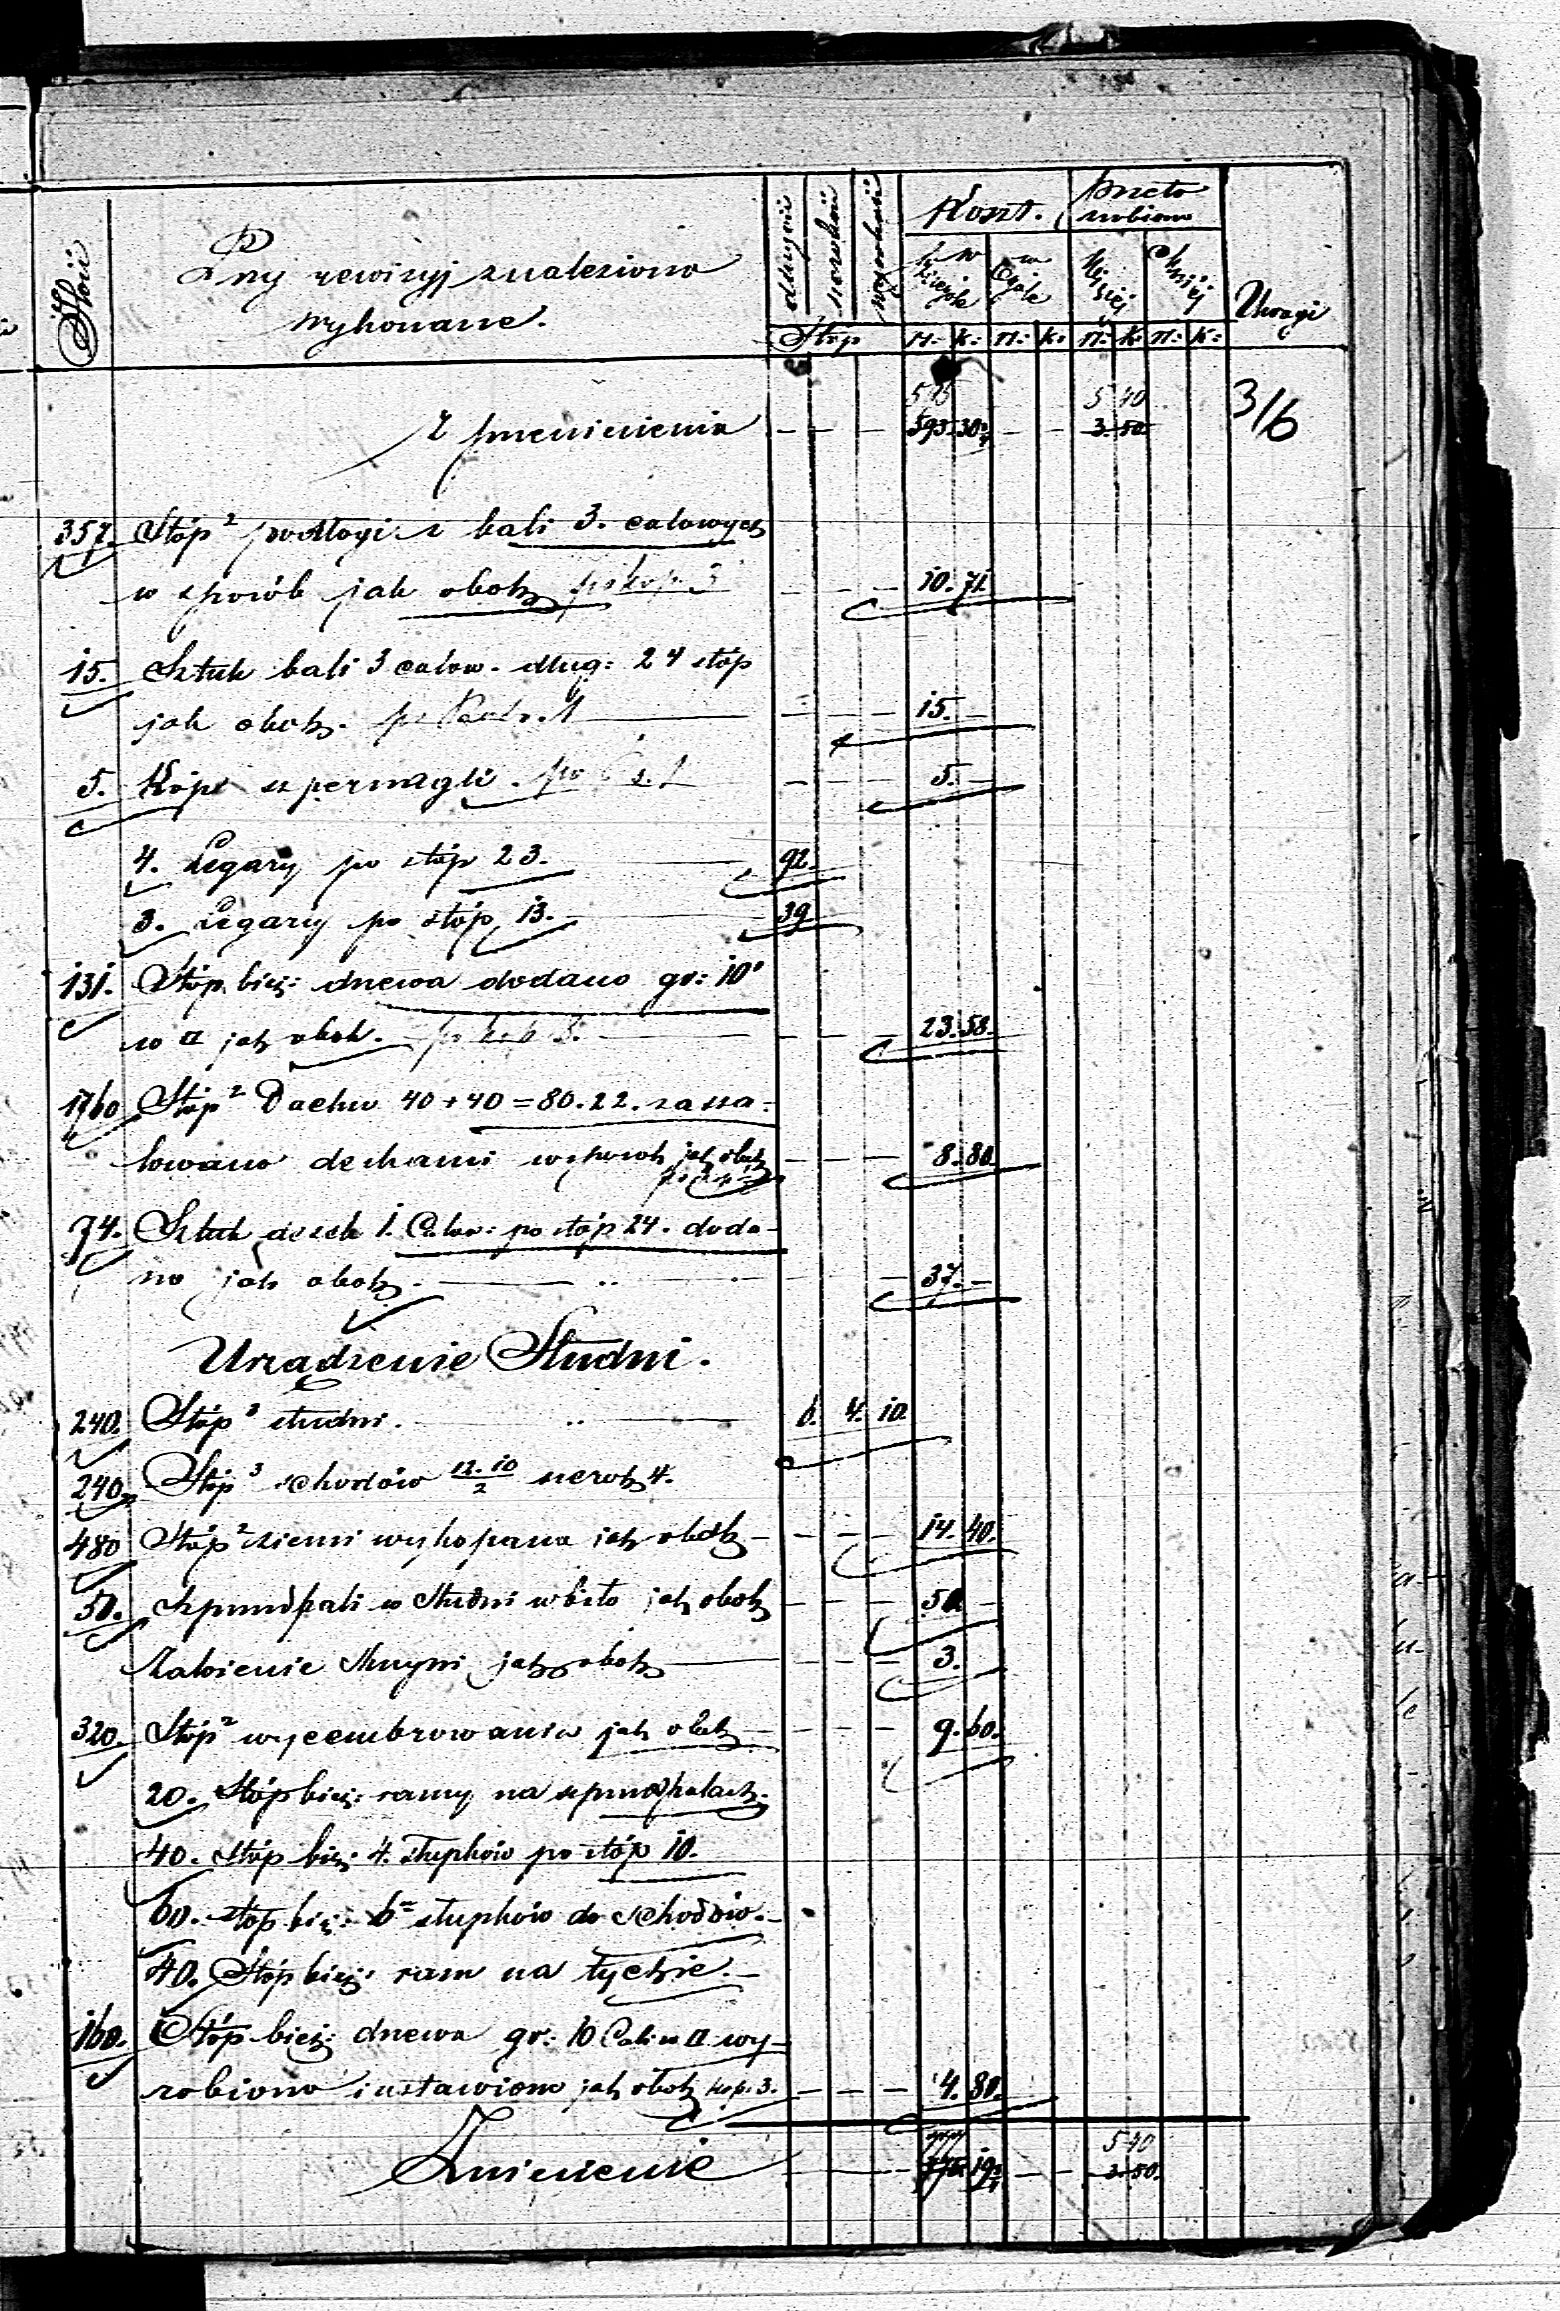 Ilość
Przy rewizyj znaleziono
wykonane.
długość
szerokość
wysokość
Stóp
Koszt.
w
Ogóle
R: k: R: k: R: k: R: k:
Uwagi
Z przeniesienia — — — 593.30 — — 3.50
595 5 40
316
357. Stóp² podłogi z bali 3. calowych
w sposób jak obok po kop. 3 — — — 10.71.
15. Sztuk bali 3 calow. dług: 24 stóp
jak obok. — — — 15. —
5. Kóp szpernagli. po — — — 5. —
4. Legary po stóp 23. — 92.
3. Legary po stóp 13. — 39
131. Stóp bież: drzewa dodano gr: 10"
w □ jak obok. — — — 23.58.
1760 Stóp² Dachu 40+40=80.22. zasza-
lowano deskami w sposób jak obok — — — 8.80.
74. Sztuk desek 1. Calow: po stóp 24. doda-
no jak obok. — — — 37. —
Urządzenie Studni.
240. Stóp³ studni. — 6. 4. 10.
240. Stóp³ schodów 12.10/2 szerok 4.
480 Stóp² ziemi wykopana jak obok — — — 14.40.
50. Szpundpali w Studni wbito jak obok — — — 50. —
Zabicie jak obok — — — 3.
320. Stóp² wycembrowania jak obok — — — 9.60.
20. Stóp bież: ramy na szpundpalach.
40. Stóp bież: 4. słupków po stóp 10.
60. stóp bież: 6= słupków do schodów. —
40. Stóp bież: ram na tychże. —
160. Stóp bież: drzewa gr: 10 Cali w □ wy-
robiono i ustawiono jak obok kop. 3. — — — 4.80.
5 40
Zniesienie — — — — — 3.50.